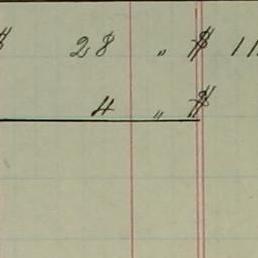 $ 28 " $ 11
4 " $